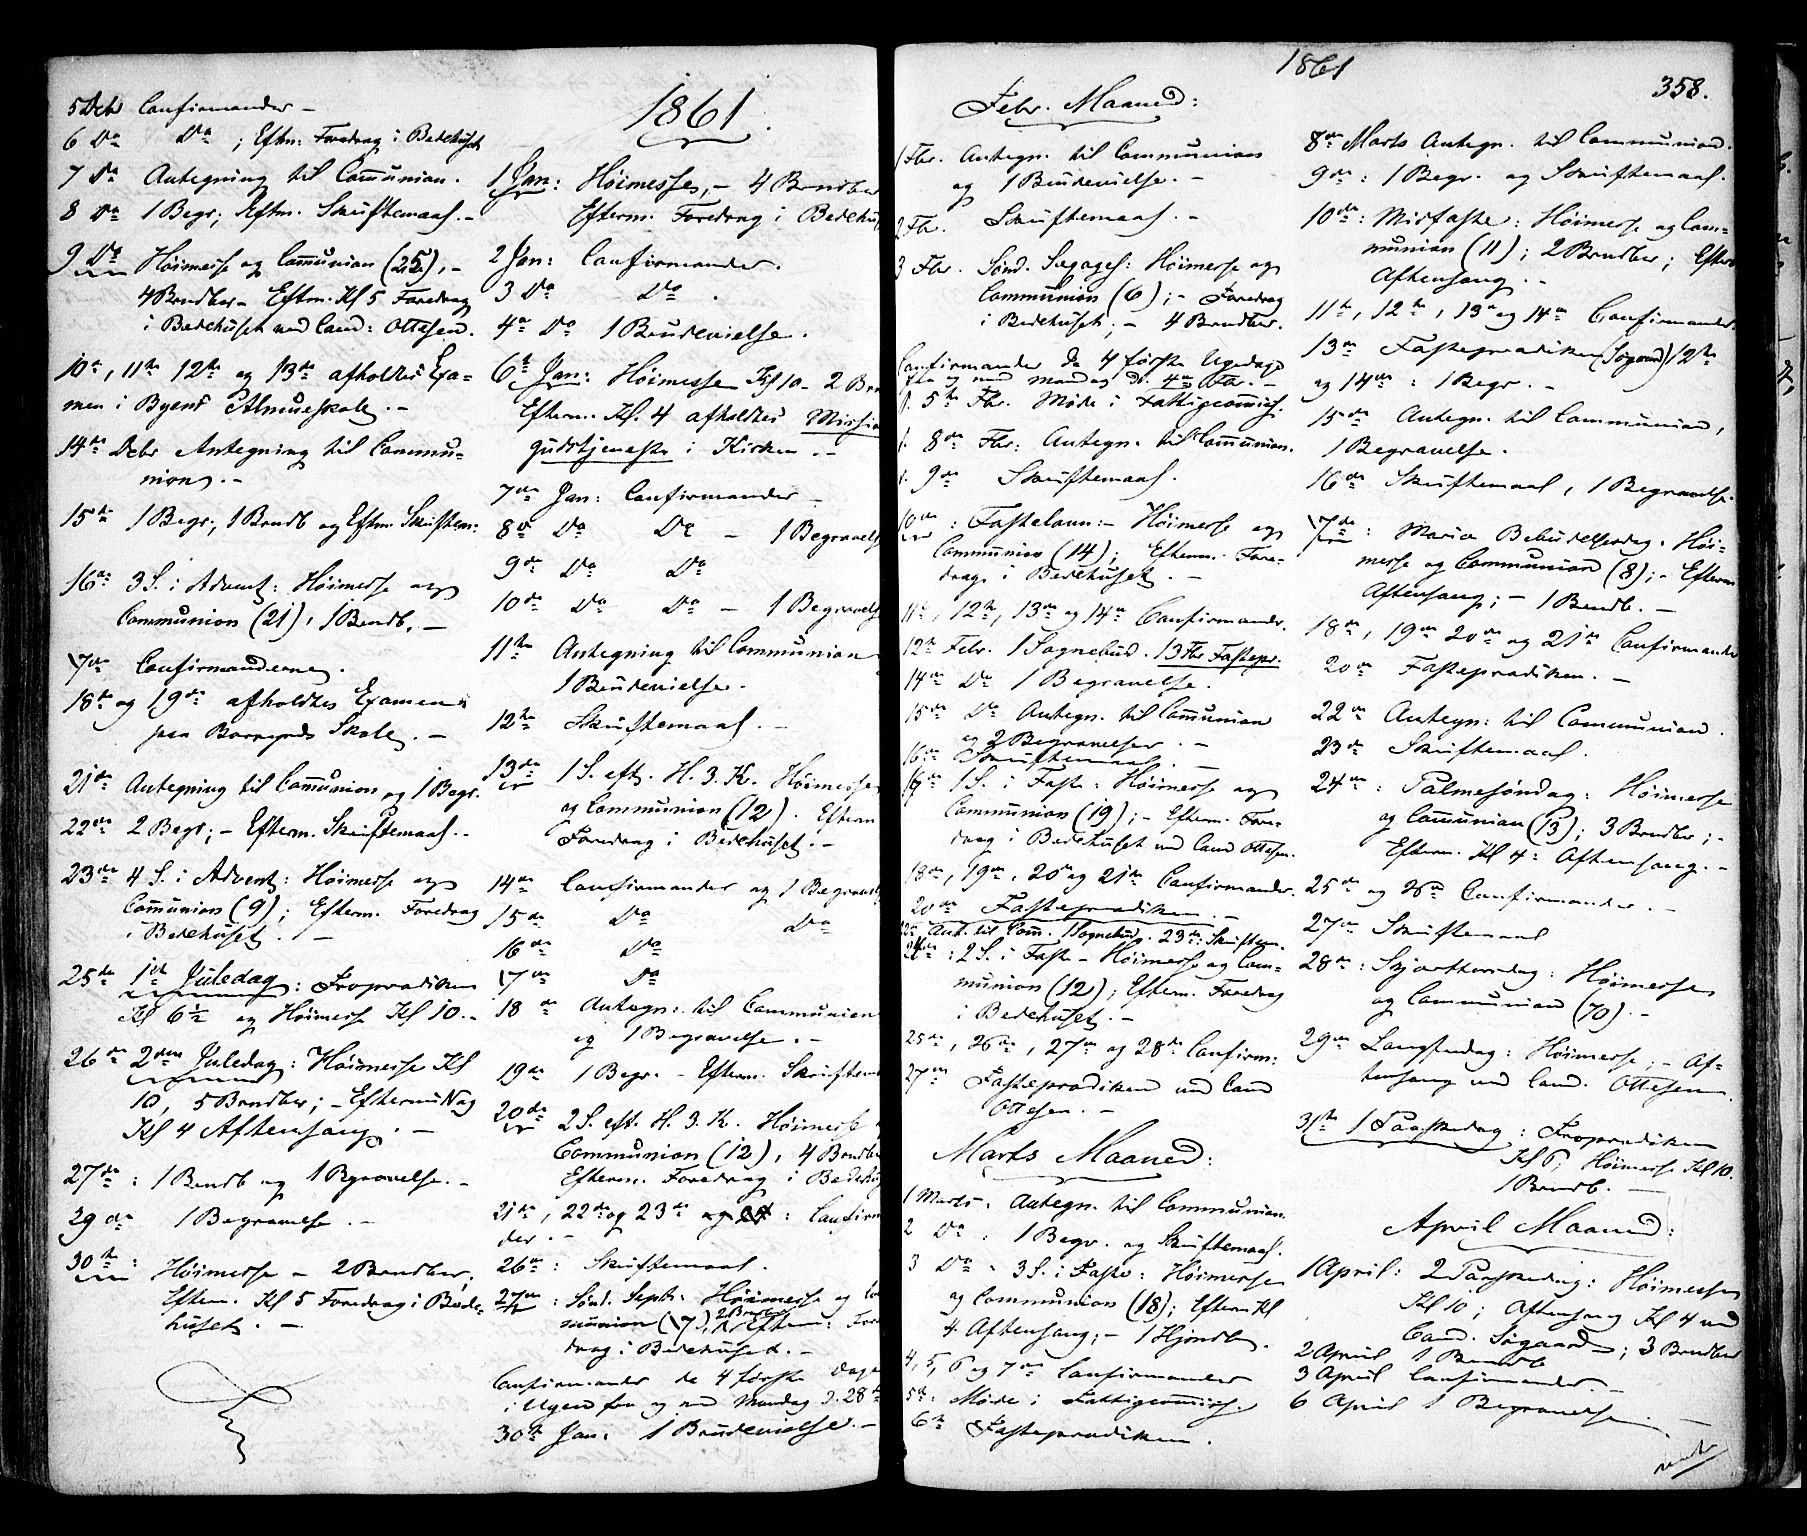 5 Dcbr Confirmander –
6 Do Do ; Eftm: Foredrag i Bedehuset
7 Do Antegning til Communion.
8 Do 1 Begr; Eftm. Skriftemaal. –
9 Do Høimesse og Communion (25), –
4 Brndbr – Eftm. Kl 5 Foredrag
i Bedehuset ved Cand: Ottesen.
10de, 11te 12te og 13de afholdtes Exa-
men i Byens Almueskole. –
14de Dcbr Antegning til Commu-
nion. –
15te 1 Begr; 1 Brndb og Eftm Skriftem:
16de 3 S. i Advent: Høimesse og
Communion (21), 1 Brndb. –
17de Confirmanderne.
18de og 19de afholdtes Examen
paa Borregaards Skole. –
21de Antegning til Communion og 1 Begr.
22de 2 Begr; – Efterm. Skriftemaal. –
23de 4 S. i Advent: Høimesse og
Communion (9); Efterm. Foredrag
i Bedehuset. –
25de 1ste Juledag: Froprædiken
Kl 6½ og Høimesse Kl 10. –
26de 2den Juledag: Høimesse Kl
10, 5 Brndbr; – Eftermiddag
Kl 4 Aftensang. –
27de : 1 Brndb og 1 Bgravelse. –
29de 1 Begravelse. –
30te : Høimesse – 2 Brndbr;
Efterm. Kl 5 Foredrag i Bede-
huset. –
1861.
1 Jan: Høimesse, – 4 Brndbr
Efterm. Foredrag i Bedehus
2 Jan: Confirmander.
3 Do Do .
4de Do 1 Brudevielse.
6te Jan: Høimesse Kl 10 – 2 Brn
Efterm. Kl. 4 afholdtes Mission
gudstjeneste i Kirken. –
7de Jan: Confirmander –
8de Do Do – 1 Begravelse
9de Do Do
10de Do Do – 1 Begravelse
11te Antegning til Communion
1 Brudevielse.
12te Skriftemaal. –
13de 1 S. eft. H. 3. K. Høimesse
og Communion (12). Efterm
Foredrag i Bedehuset. –
14de Confirmander og 1 Begravelse
15de Do Do
16de Do
17de Do
18de Antegn: til Communion
og 1 Begravelse. –
19de 1 Begr. – Efterm. Skriftem
20de 2 S. eft. H. 3. K. Høimesse
Communion (12), 4 Brndbr
Efterm. Foredrag i Bedehus
21de, 22de og 23de : Confirm
der. –
26de : Skriftemaal.
27de : Sønd. Sept: Høimesse og Co
munion (17), 2 Brndbr Efterm: For
drag i Bedehuset. –
Confirmander de 4 første Dage
i Ugen fra og med Mandag d. 28de
30te Jan: 1 Brudevielse. –
1861
358.
Febr. Maaned:
1 Fbr. Antegn. til Communion
og 1 Brudevielse. –
2 Fbr. Skriftemaal. –
3 Fbr. Sønd. Sexages: Høimesse og
Communion (6); – Foredrag
i Bedehuset; – 4 Brndbr.
Confirmander de 4 første Ugedage
fra og med Mandag d. 4de Fbr. –
d. 5te Fbr. Møde i Fattigcommiss.
d. 8de Fbr: Antegn. til Communion.
d. 9de Skriftemaal.
10de : Fastelavn: – Høimesse og
Communion (14); Efterm. Fore-
drag i Bedehuset. –
11te, 12te, 13de og 14de Confirmander.
12te Febr. 1 Sognebud. 13 Fbr Fastepr.
14de Do 1 Begravelse.
15de Do Antegn. til Communion
og 2 Begravelser. –
16de Skriftemaal. –
17de 1 S. i Faste: Høimesse og
Communion (19); – Efterm. Fore-
drag i Bedehuset ved Cand Ottesen.
18de, 19de, 20de og 21de Confirmander.
20de Fasteprædiken. –
22de Ant. til Com. 1 Sognebud. 23de Skriftem.
24de : 2 S. i Faste – Høimesse og Com-
munion (12); Efterm. Foredrag
i Bedehuset. –
25de, 26de, 27de og 28de Confirm:
27de Fasteprædiken ved Cand
Ottesen. –
Marts Maaned:
1 Marts. Antegn. til Communion.
2 Do : 1 Begr. og Skriftemaal.
3 Do – 3 S. i Faste: Høimesse
og Communion (18); Efterm Kl
4 Aftensang; – 1 Hjmdb.
4, 5, 6 og 7de Confirmander
5te : Møde i Fattigcommiss.
6te Fasteprædiken.
8de Marts Antegn. til Communion.
9de : 1 Begr. og Skriftemaal.
10de : Midfaste: Høimesse og Com-
munion (11); 2 Brndbr; Efterm
Aftensang. –
11te, 12te, 13de og 14de Confirmander.
13de Fasteprædiken (Søgaard) 12te
og 14de : 1 Begr. –
15de Antegn. til Communion,
1 Begravelse.
16de Skriftemaal, 1 Begravelse.
17de : Mariæ Bebudelsesdag. Høi-
messe og Communion (8); – Efterm
Aftensang; – 1 Brndb. –
18de, 19de 20de og 21de Confirmander
20de Fasteprædiken. –
22de Antegn: til Communion.
23de Skriftemaal.
24de : Palmesøndag: Høimesse
og Communion (13); 3 Brndbr; –
Efterm. Kl 4: Aftensang. –
25de og 26de Confirmander. –
27de Skriftemaal
28de : Skjærthorsdag: Høimesse
og Communion (70). –
29de Langfredag: Høimesse; – Af-
tensang ved Cand. Ottesen
31te 1 Paaskedag: Froprædiken
Kl 6; Høimesse Kl 10.
1 Brndb. –
April Maaned:
1 April: 2 Paaskedag: Høimesse
Kl 10; Aftensang Kl 4 ved
Cand. Søgaard; 3 Brndbr
2 April 1 Brndb
3 April Confirmander. –
6 April 1 Begravelse. –
vendt